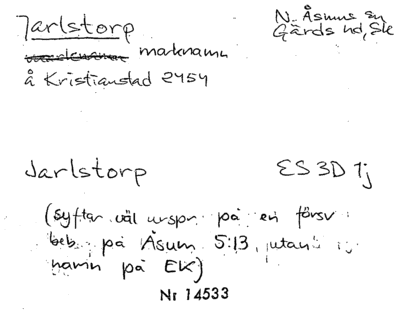 Jarlstorp
N. Åsums sn
Gärds hd, Sk
marknamn
å Kristianstad 2454
Jarlstorp
ES 3D 1j
(syftar väl urspr. på en försv.
beb. på Åsum 5:13, utan
namn på EK)
Nr 14533